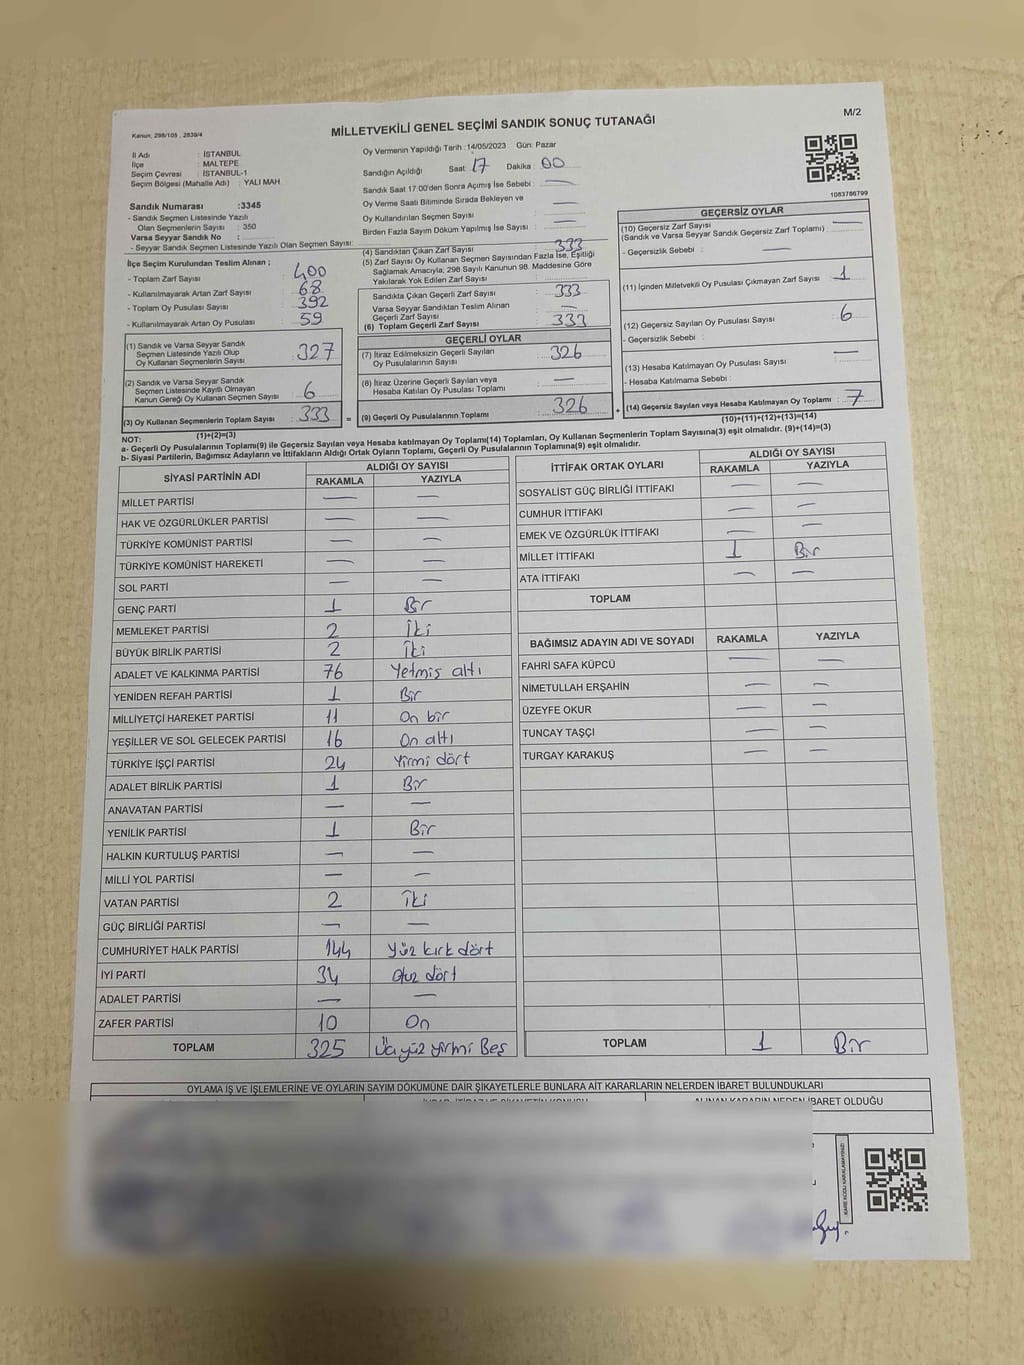 M/2
Kanun: 298/105 , 2839/4
MİLLETVEKİLİ GENEL SEÇİMİ SANDIK SONUÇ TUTANAĞI
İl Adı : İSTANBUL
İlçe : MALTEPE
Seçim Çevresi : İSTANBUL-1
Seçim Bölgesi (Mahalle Adı) : YALI MAH
Sandık Numarası :3345
- Sandık Seçmen Listesinde Yazılı
Olan Seçmenlerin Sayısı : 350
Varsa Seyyar Sandık No :
- Seyyar Sandık Seçmen Listesinde Yazılı Olan Seçmen Sayısı:
Oy Vermenin Yapıldığı Tarih :14/05/2023 Gün: Pazar
Sandığın Açıldığı Saat : 17 Dakika : 00
Sandık Saat 17:00'den Sonra Açmış İse Sebebi : —
Oy Verme Saati Bitiminde Sırada Bekleyen ve —
Oy Kullandırılan Seçmen Sayısı —
Birden Fazla Sayım Döküm Yapılmış İse Sayısı : —
1083786799
İlçe Seçim Kurulundan Teslim Alınan ;
- Toplam Zarf Sayısı : 400
- Kullanılmayarak Artan Zarf Sayısı : 68
- Toplam Oy Pusulası Sayısı : 392
- Kullanılmayarak Artan Oy Pusulası : 59
(1) Sandık ve Varsa Seyyar Sandık
Seçmen Listesinde Yazılı Olup
Oy Kullanan Seçmenlerin Sayısı : 327
(2) Sandık ve Varsa Seyyar Sandık
Seçmen Listesinde Kayıtlı Olmayan
Kanun Gereği Oy Kullanan Seçmen Sayısı : 6
(3) Oy Kullanan Seçmenlerin Toplam Sayısı : 333 =
(1)+(2)=(3)
(4) Sandıktan Çıkan Zarf Sayısı : 333
(5) Zarf Sayısı Oy Kullanan Seçmen Sayısından Fazla İse, Eşitliği
Sağlamak Amacıyla, 298 Sayılı Kanunun 98. Maddesine Göre
Yakılarak Yok Edilen Zarf Sayısı :
Sandıkta Çıkan Geçerli Zarf Sayısı : 333
Varsa Seyyar Sandıktan Teslim Alınan
Geçerli Zarf Sayısı : —
(6) Toplam Geçerli Zarf Sayısı : 333
GEÇERLİ OYLAR
(7) İtiraz Edilmeksizin Geçerli Sayılan
Oy Pusulalarının Sayısı : 326
(8) İtiraz Üzerine Geçerli Sayılan veya
Hesaba Katılan Oy Pusulası Toplamı : —
(9) Geçerli Oy Pusulalarının Toplamı : 326 +
GEÇERSİZ OYLAR
(10) Geçersiz Zarf Sayısı : —
(Sandık ve Varsa Seyyar Sandık Geçersiz Zarf Toplamı)
- Geçersizlik Sebebi : —
(11) İçinden Milletvekili Oy Pusulası Çıkmayan Zarf Sayısı : 1
(12) Geçersiz Sayılan Oy Pusulası Sayısı : 6
- Geçersizlik Sebebi :
(13) Hesaba Katılmayan Oy Pusulası Sayısı : —
- Hesaba Katılmama Sebebi :
(14) Geçersiz Sayılan veya Hesaba Katılmayan Oy Toplamı : 7
(10)+(11)+(12)+(13)=(14)
NOT:
a- Geçerli Oy Pusulalarının Toplamı(9) ile Geçersiz Sayılan veya Hesaba katılmayan Oy Toplamı(14) Toplamları, Oy Kullanan Seçmenlerin Toplam Sayısına(3) eşit olmalıdır. (9)+(14)=(3)
b- Siyasi Partilerin, Bağımsız Adayların ve İttifakların Aldığı Ortak Oyların Toplamı, Geçerli Oy Pusulalarının Toplamına(9) eşit olmalıdır.
SİYASİ PARTİNİN ADI ALDIĞI OY SAYISI
RAKAMLA YAZIYLA
MİLLET PARTİSİ — —
HAK VE ÖZGÜRLÜKLER PARTİSİ — —
TÜRKİYE KOMÜNİST PARTİSİ — —
TÜRKİYE KOMÜNİST HAREKETİ — —
SOL PARTİ — —
GENÇ PARTİ 1 Bir
MEMLEKET PARTİSİ 2 İki
BÜYÜK BİRLİK PARTİSİ 2 İki
ADALET VE KALKINMA PARTİSİ 76 Yetmiş altı
YENİDEN REFAH PARTİSİ 1 Bir
MİLLİYETÇİ HAREKET PARTİSİ 11 On bir
YEŞİLLER VE SOL GELECEK PARTİSİ 16 On altı
TÜRKİYE İŞÇİ PARTİSİ 24 Yirmi dört
ADALET BİRLİK PARTİSİ 1 Bir
ANAVATAN PARTİSİ — —
YENİLİK PARTİSİ 1 Bir
HALKIN KURTULUŞ PARTİSİ — —
MİLLİ YOL PARTİSİ — —
VATAN PARTİSİ 2 İki
GÜÇ BİRLİĞİ PARTİSİ — —
CUMHURİYET HALK PARTİSİ 144 Yüz kırk dört
İYİ PARTİ 34 Otuz dört
ADALET PARTİSİ — —
ZAFER PARTİSİ 10 On
TOPLAM 325 Üçyüz yirmi Beş
İTTİFAK ORTAK OYLARI ALDIĞI OY SAYISI
RAKAMLA YAZIYLA
SOSYALİST GÜÇ BİRLİĞİ İTTİFAKI — —
CUMHUR İTTİFAKI — —
EMEK VE ÖZGÜRLÜK İTTİFAKI — —
MİLLET İTTİFAKI 1 Bir
ATA İTTİFAKI — —
TOPLAM
BAĞIMSIZ ADAYIN ADI VE SOYADI RAKAMLA YAZIYLA
FAHRİ SAFA KÜPCÜ — —
NİMETULLAH ERŞAHİN — —
ÜZEYFE OKUR — —
TUNCAY TAŞÇI — —
TURGAY KARAKUŞ — —
TOPLAM 1 Bir
OYLAMA İŞ VE İŞLEMLERİNE VE OYLARIN SAYIM DÖKÜMÜNE DAİR ŞİKAYETLERLE BUNLARA AİT KARARLARIN NELERDEN İBARET BULUNDUKLARI
ALINAN KARARIN NEDEN İBARET OLDUĞU
KARE KODU KARALAMAYINIZ!